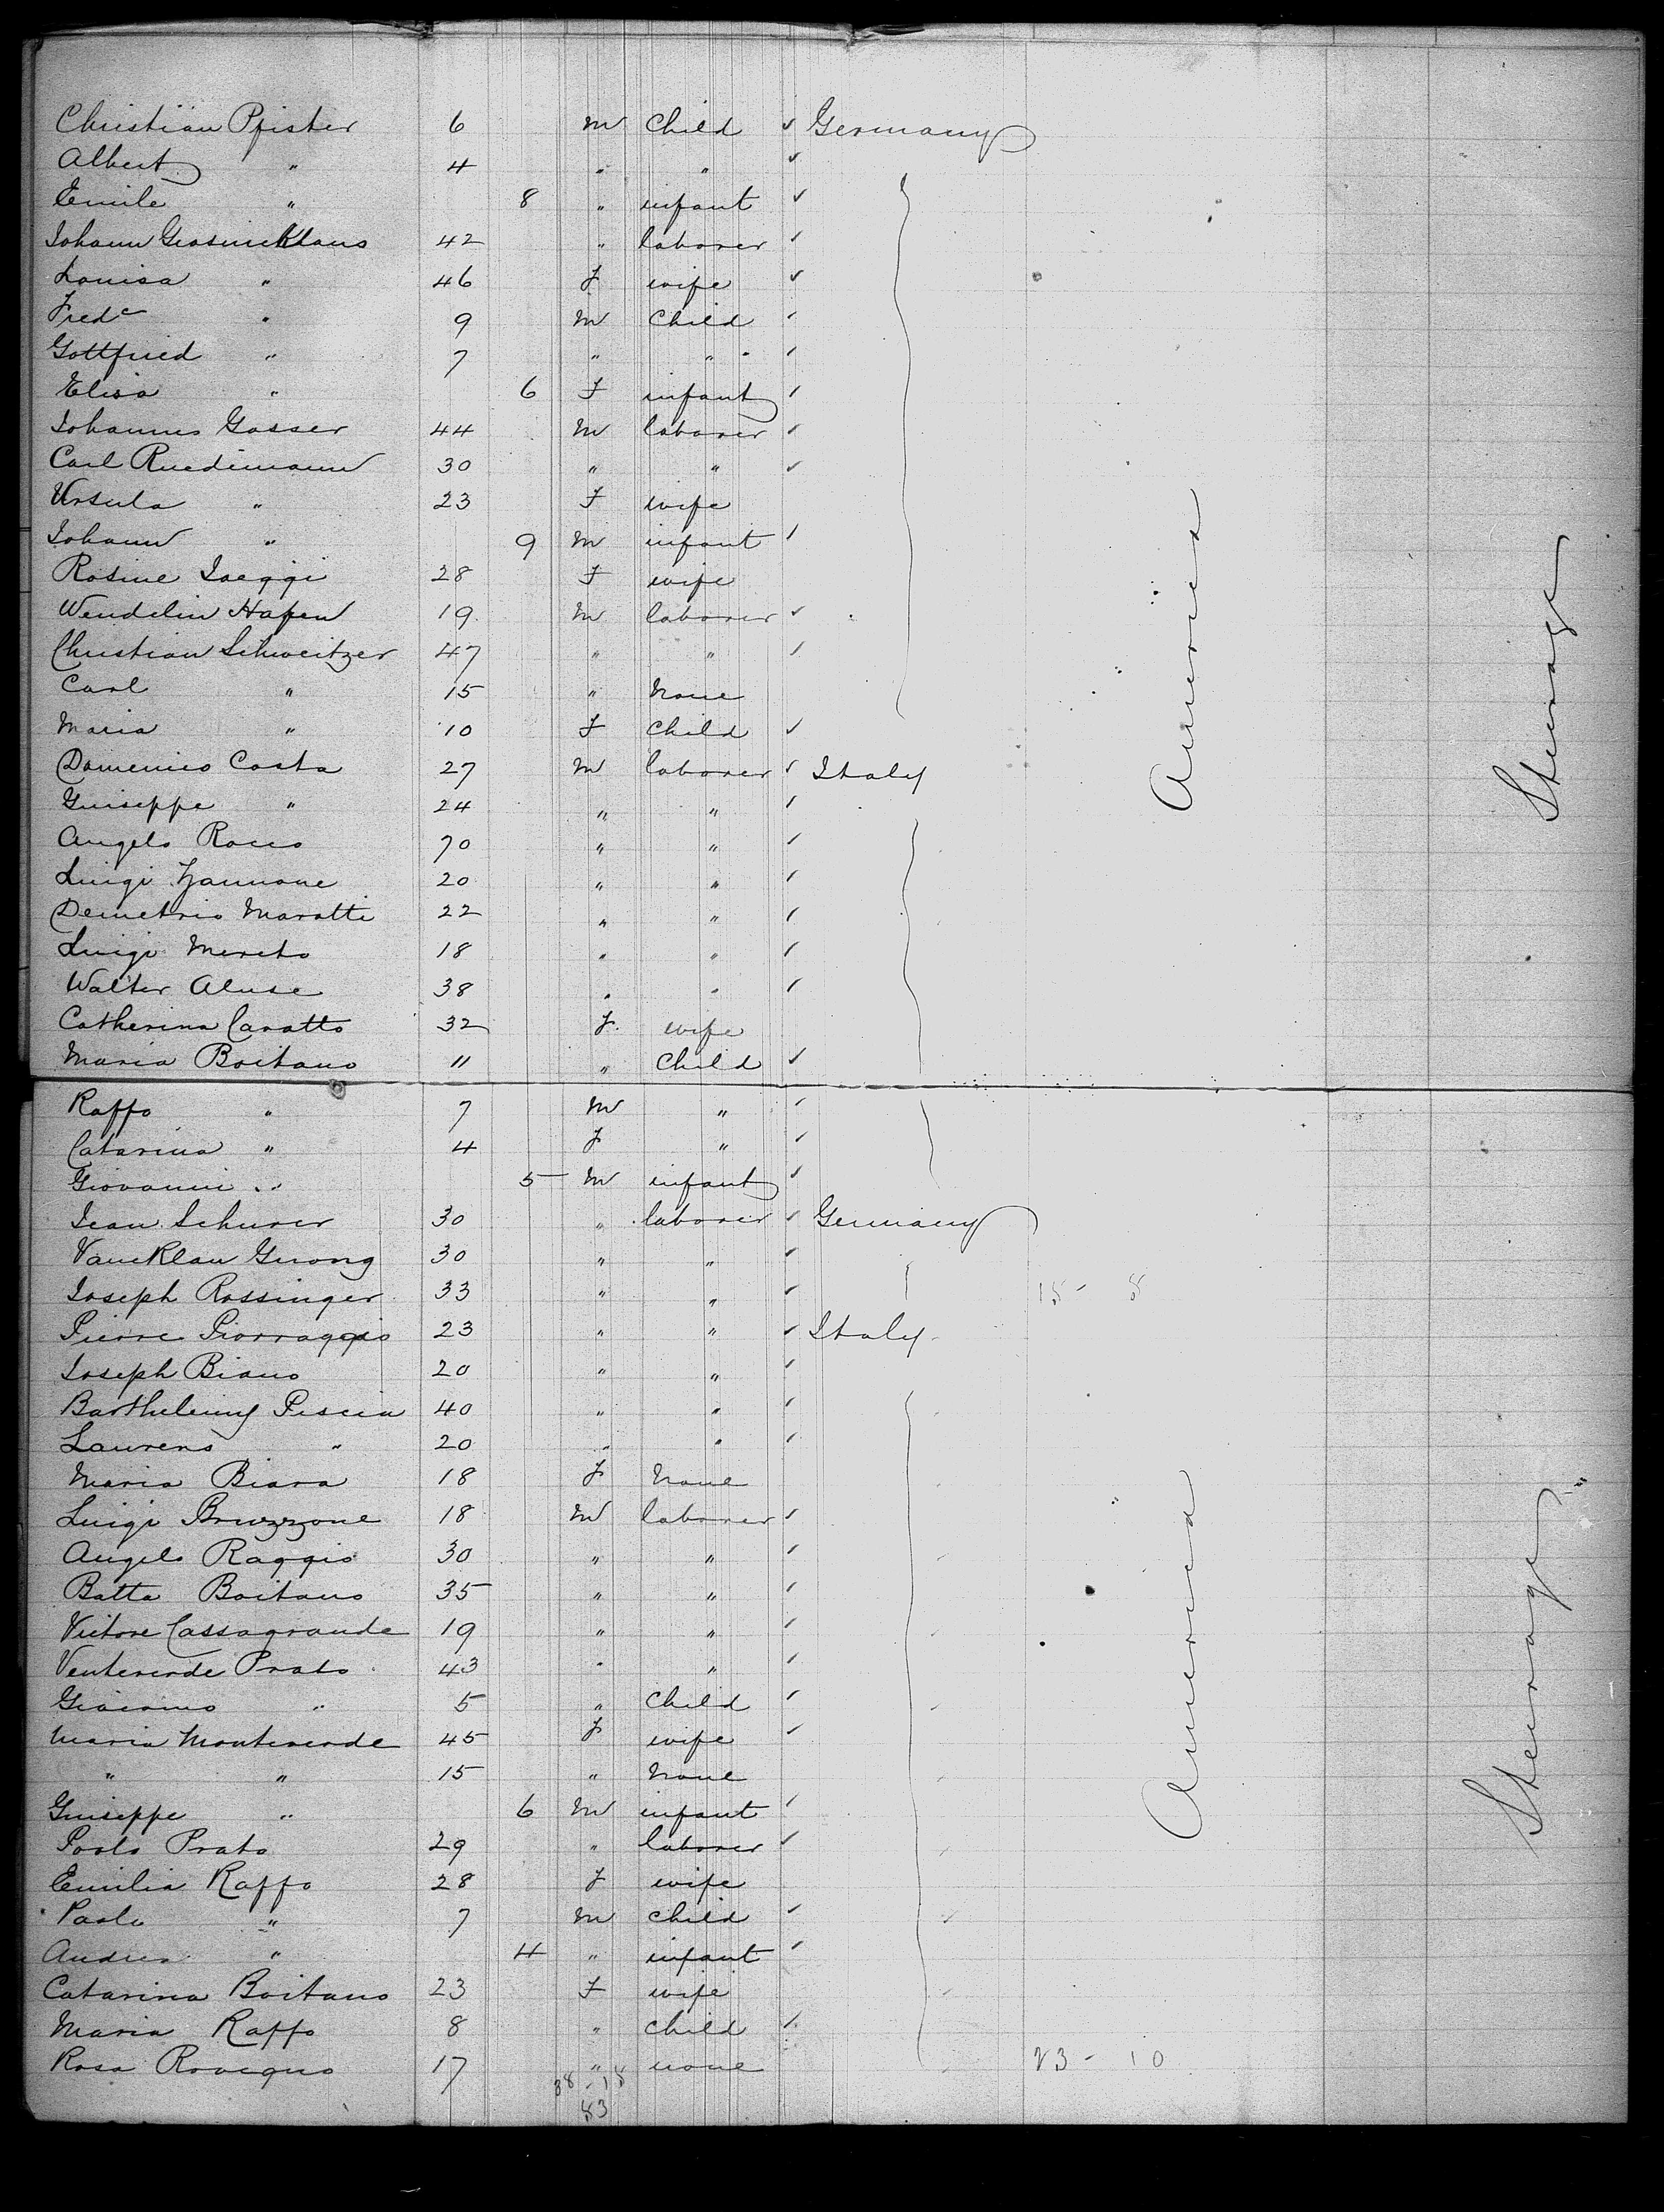 Christian Pfister 6 M Child ✓ Germany
Albert " 4 " " ✓
Emile " 8 " infant ✓
Johann Grosnicklaus 42 " laborer ✓
Louisa " 46 F wife ✓
Fredc " 9 M Child ✓
Gottfried " 7 " " ✓
Elisa " 6 F infant ✓
Johannes Gasser 44 M laborer ✓
Carl Ruedimann 30 " " ✓
Ursula " 23 F wife
Johann " 9 M infant ✓
Rosine Jaeggi 28 F wife
Wendelin Hafen 19 M laborer ✓
Christian Schweitzer 47 " " ✓
Carl " 15 " None
Maria " 10 F Child ✓
Domenico Costa 27 M laborer ✓ Italy
Guiseppe " 24 " " ✓
Angelo Rocco 70 " " ✓
Luigi Zannone 20 " " ✓
Demetrio Maratti 22 " " ✓
Luigi Mereto 18 " " ✓
Walter Aluse 38 " " ✓
Catherina Caratto 32 F. wife
Maria Boitano 11 " Child ✓
America
Steerage
Raffo " 7 M " ✓
Catarina " 4 F " ✓
Giovanni " 5 M infant ✓
Jean Schurer 30 " laborer ✓ Germany
Vancklau Guong 30 " " ✓
Joseph Rossinger 33 " " ✓ 15 - 8
Pierre Piorraggio 23 " " ✓ Italy
Joseph Biano 20 " " ✓
Barthelemy Piscia 40 " " ✓
Laurens " 20 " " ✓
Maria Biara 18 F None
Luigi Bruzzone 18 M laborer ✓
Angelo Raggio 30 " " ✓
Batta Boitano 35 " " ✓
Victore Cassagrande 19 " " ✓
Venteverde Prato 43 " " ✓
Giacomo " 5 " Child ✓
Maria Monteverde 45 F wife ✓
" " 15 " None
Guiseppe " 6 M infant ✓
Paolo Prato 29 " laborer ✓
Emilia Raffo 28 F wife
Paolo " 7 M Child ✓
Andrea " 4 " infant ✓
Catarina Boitano 23 F wife
Maria Raffo 8 " Child ✓
Rosa Rovegno 17 " none 23 - 10
38 - 15
53
America
Steerage